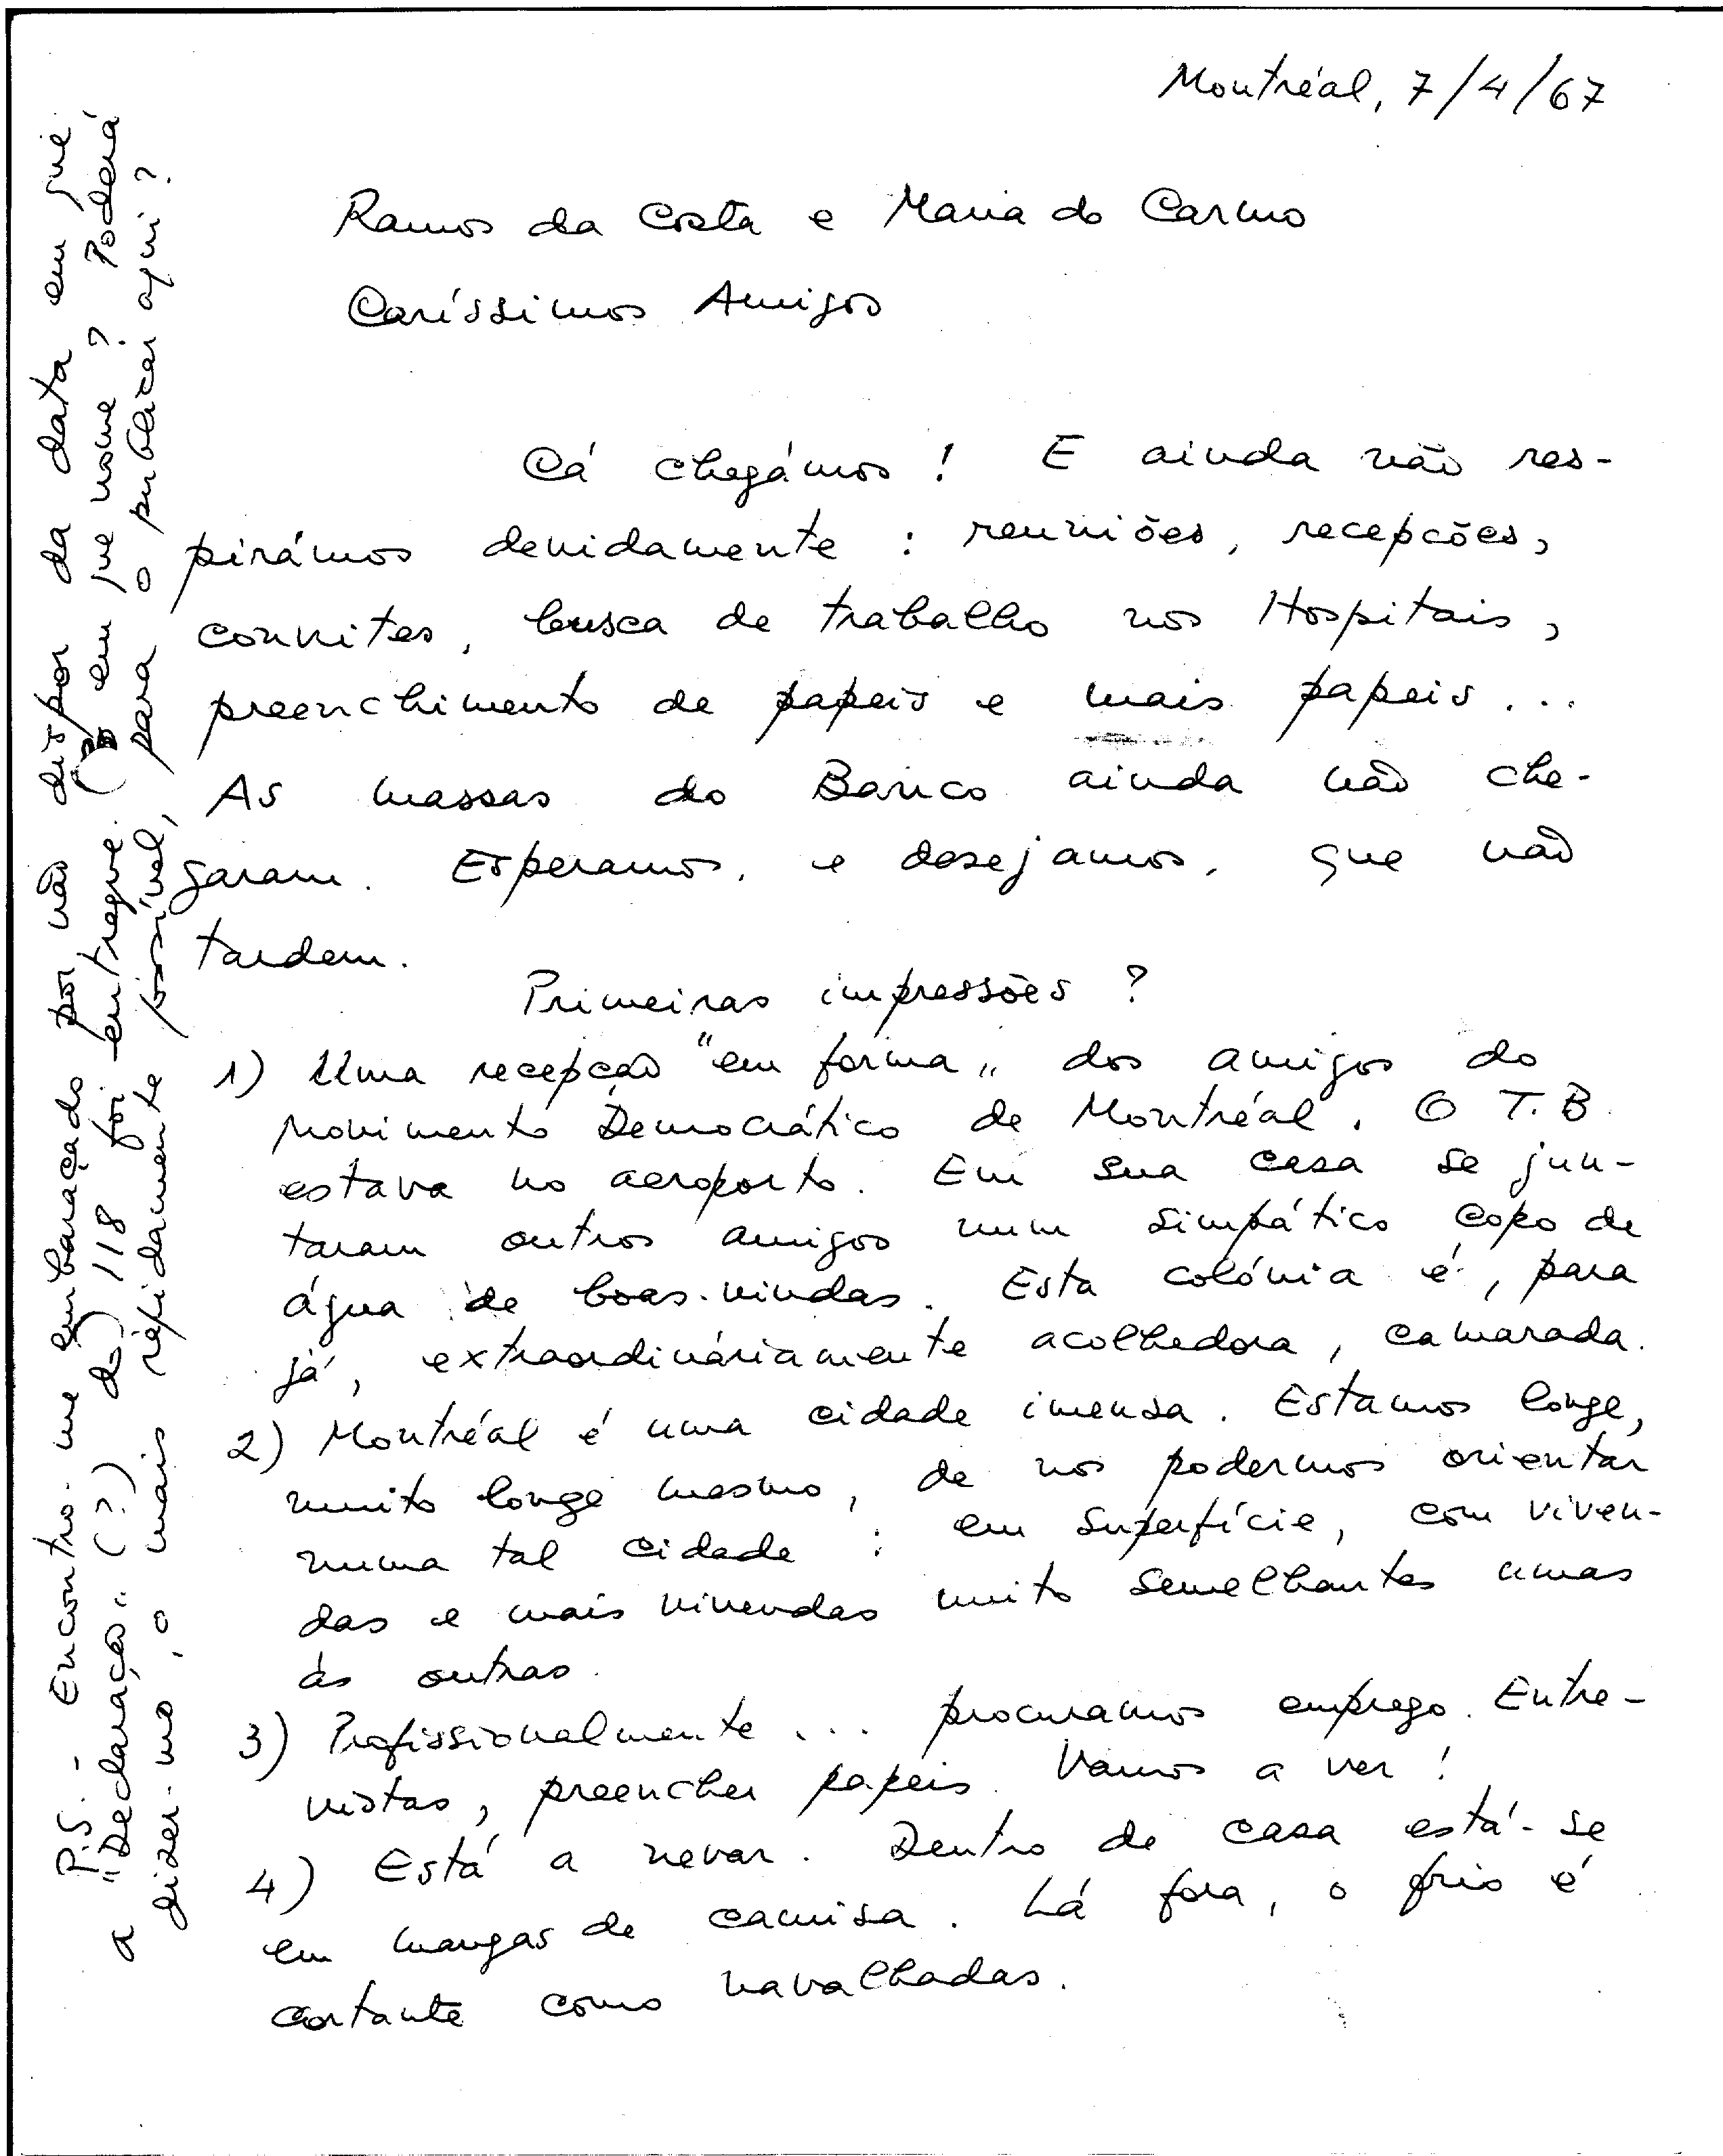 Montréal, 7/4/67
Ramos da Costa e Maria do Carmo
Caríssimos Amigos
Cá chegámos ! E ainda não res-
pirámos devidamente : reuniões, recepções,
convites, busca de trabalho nos Hospitais,
preenchimento de papeis e mais papeis ...
As massas do Banco ainda não che-
garam. Esperamos, e desejamos, que não
tardem.
Primeiras impressões ?
1) Uma recepção "em forma" dos amigos do
Movimento Democrático de Montréal. O T.B.
estava no aeroporto. Em sua casa se jun-
taram outros amigos num simpático copo de
água de boas-vindas. Esta colónia é, para
já, extraordináriamente acolhedora, camarada.
2) Montréal é uma cidade imensa. Estamos longe,
muito longe mesmo, de nos podermos orientar
numa tal cidade : em superfície, com viven-
das e mais vivendas muito semelhantes umas
às outras.
3) Profissionalmente ... procuramos emprego. Entre-
vistas, preencher papeis. Vamos a ver !
4) Está a nevar. Dentro de casa está-se
em mangas de camisa. Lá fora, o frio é
cortante como navalhadas.
P.S. - Encontro-me embaraçado por não dispor da data em que
a "Declaração" (?) dos) 118 foi entregue. (e em que nome ? Poderá
dizer-mo, o mais rápidamente possível, para o publicar aqui ?